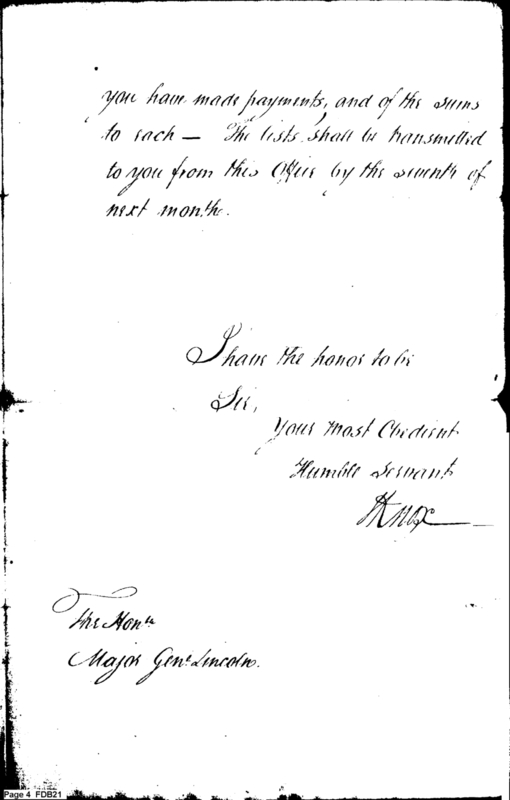 you have made payments, and of the sums
to each — The lists shall be transmitted
to you from this Office by the seventh of
next month.
I have the honor to be
Sir,
your most Obedient
Humble Servant
HKnox
The Honle
Major Genl Lincoln.
Page 4 FDB21